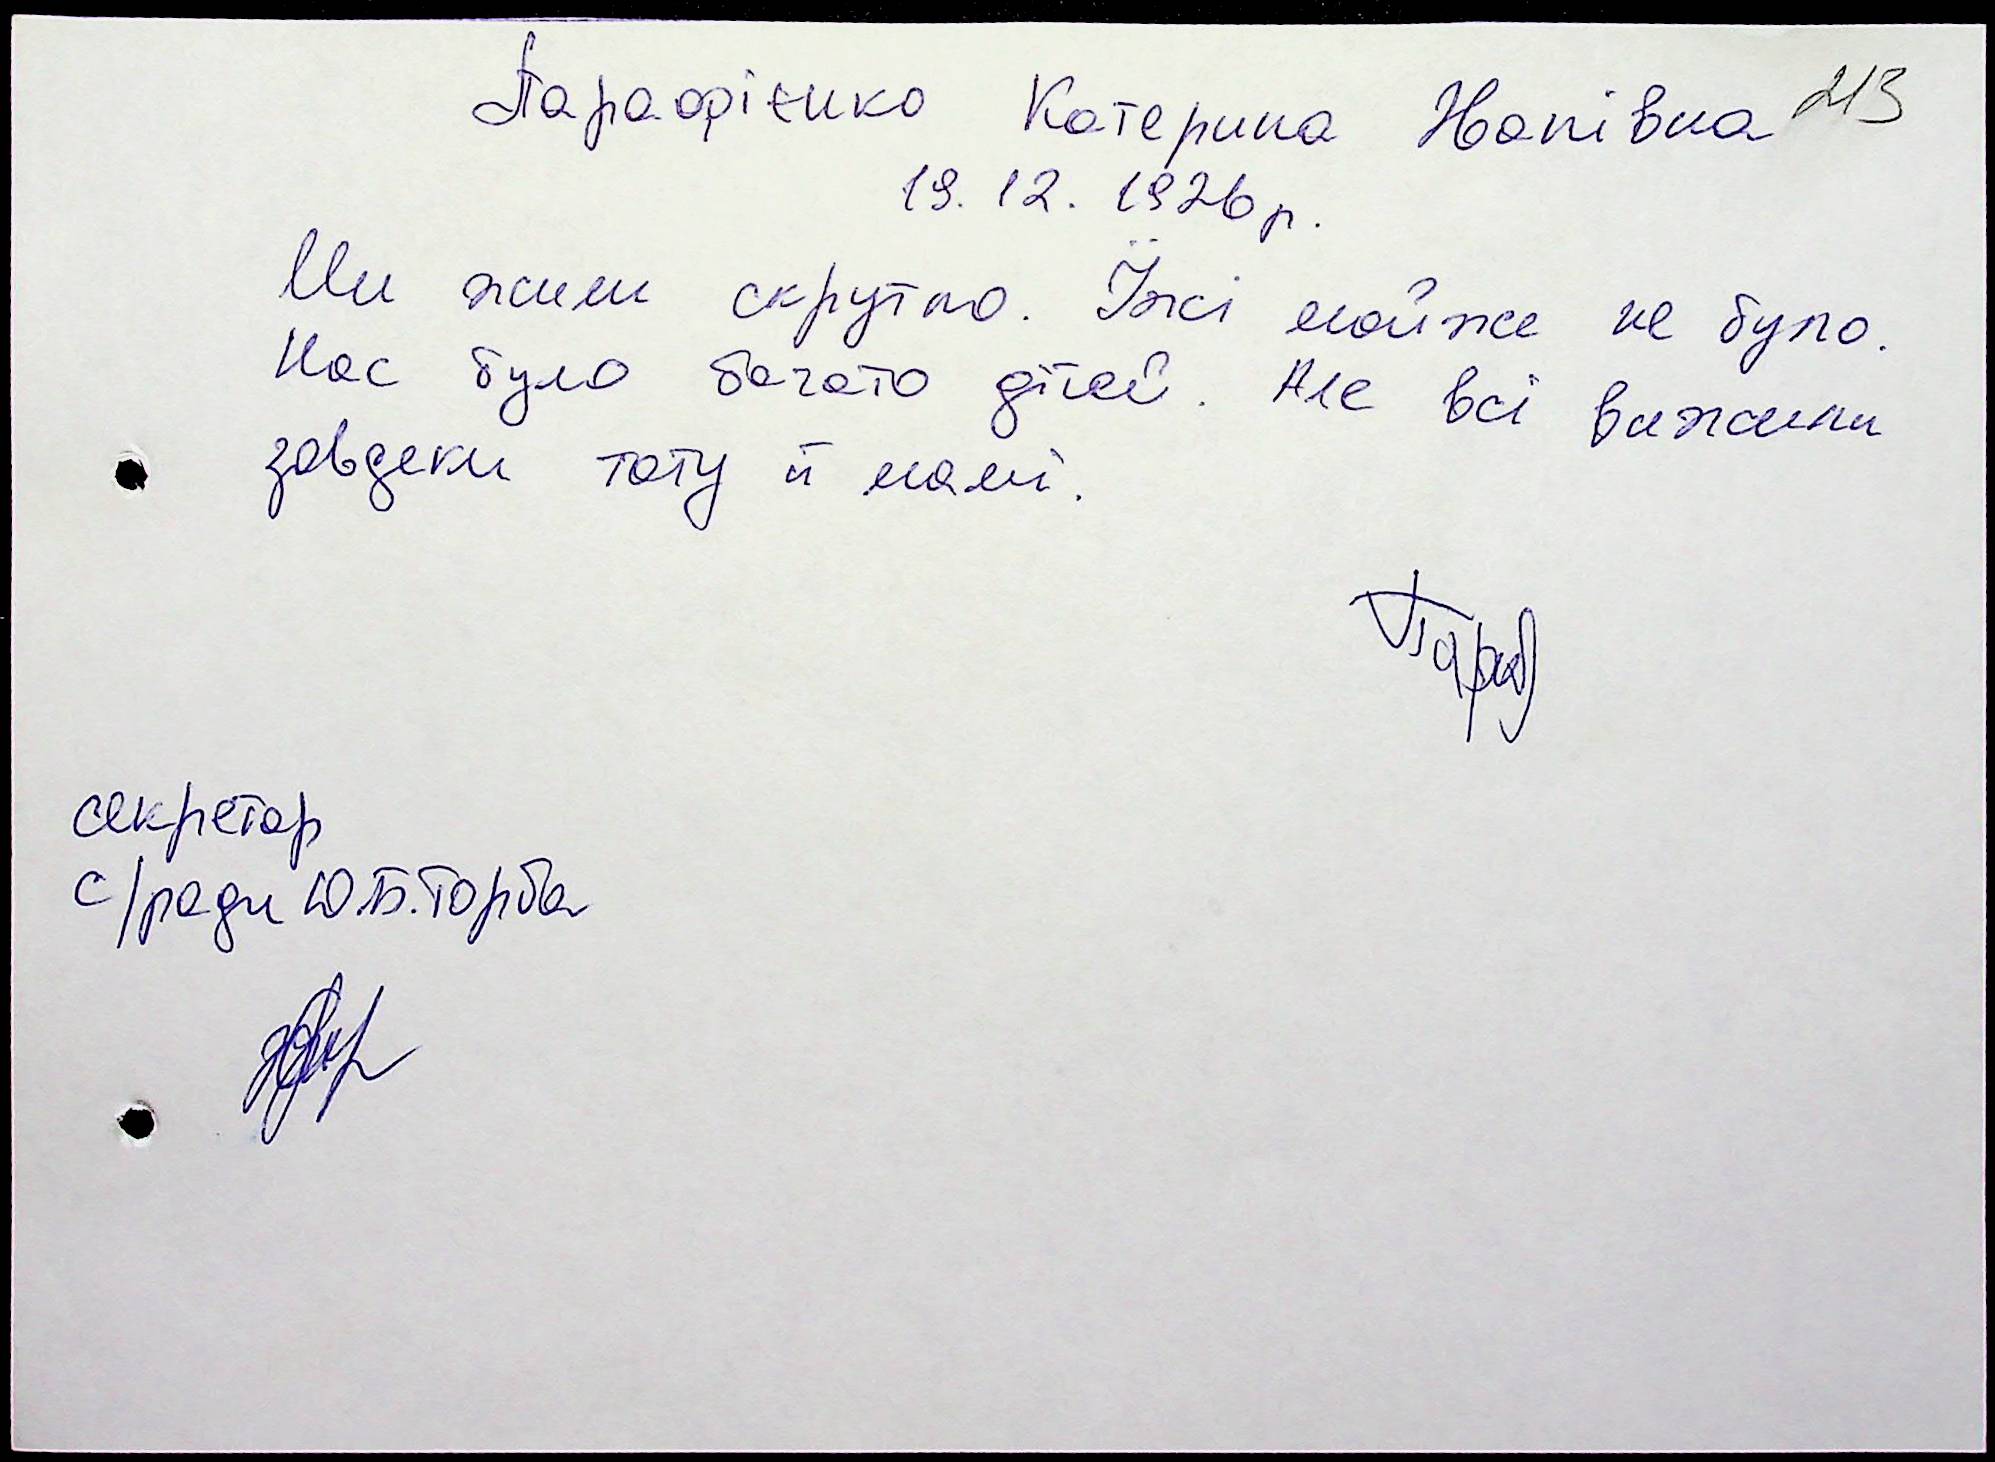 Парафієнко Катерина Іванівна 213
19.12.1926 р.
Ми жили скрутно. Їжі майже не було.
Нас було багато дітей. Але всі вижили
завдеки тату й мамі.
секретар
с/ради Ю.Б.Горба